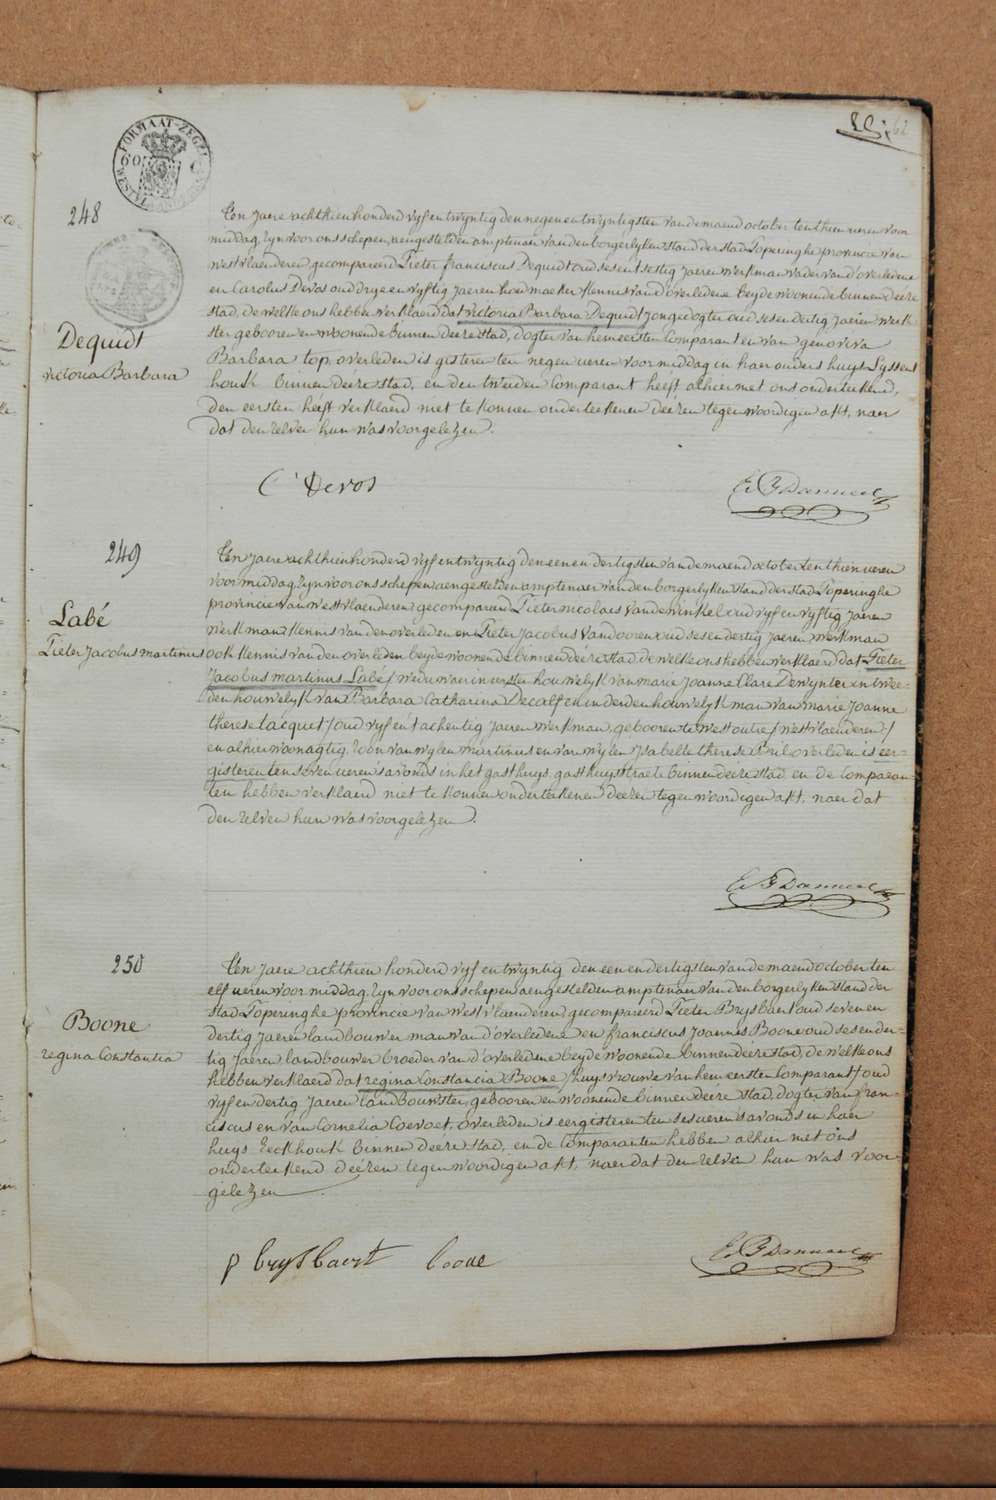 62
FORMAAT-ZEGEL
248
Ten jaere achthien honderd vyf en twyntig den negen en twyntigsten van de maend october ten thien ueren voor
middag, zyn voor ons schepen, aengestelden amptenaer van den borgerlyken stand der stad Poperinghe provincie van
westvlaenderen gecompareerd Pieter franciscus Dequidt oud ses en t'sestig jaeren werkman vader van d'overledene
en Carolus Devos oud drye en vyftig jaeren hoedmaeker kennis van d'overledene beyde woonende binnen deéze
stad, de welke ons hebben verklaerd dat victoria Barbara Dequidt jonge dogter oud ses en dertig jaeren werk-
ster gebooren en woonende binnen deéze stad, dogter van hem eersten Comparant en van genoviva
Barbara top, overleden is gisteren ten negen ueren voormiddag in haer ouders huys Lyssent
houk binnen deéze stad, en den tweeden Comparant heeft alhier met ons onderteekend,
den eersten heeft verklaerd niet te konnen onderteekenen deézen tegenwoordigen akt, naer
dat den zelven hun was voorgelezen.
Dequidt
victoria Barbara
C Devos
249
Ten jaere achthien honderd vyf en twyntig den een en dertigsten van de maend october ten thien ueren
voormiddag, zyn voor ons schepen, aengestelden amptenaer van den borgerlyken stand der stad Poperinghe
provincie van westvlaenderen gecompareerd Pieter nicolaes Vandewinkel oud vyf en vyftig jaeren
werkman kennis van den overleden en Pieter Jacobus Vandooren oud ses en dertig jaeren werkman
ook kennis van den overleden beyde woonende binnen deéze stad, de welke ons hebben verklaerd dat Pieter
Jacobus martinus Labé / weduwaer in eersten houwelyk van marie Joanne Clare Dewynter in twee-
den houwelyk van Barbara Catharina Decalf en in derden houwelyk man van marie Joanne
therese Lacquet / oud vyf en t'achentig jaeren werkman, gebooren te westoutre / westvlaenderen /
en alhier woonagtig, zoon van wylen martinus en van wylen Isabelle therese overleden is eer-
gisteren ten seven ueren s'avonds in het gasthuys gasthuysstraete binnen deéze stad, en de Comparan-
ten hebben verklaerd niet te konnen onderteekenen deézen tegenwoordigen akt, naer dat
den zelven hun was voorgelezen.
Labé
Pieter Jacobus martinus
250
Ten jaere achthien honderd vyf en twyntig den een en dertigsten van de maend october ten
elf ueren voormiddag, zyn voor ons schepen aengestelden amptenaer van den borgerlyken stand der
stad Poperinghe provincie van Westvlaenderen, gecompareerd Pieter Brysbaert oud seven en
dertig jaeren landbouwer man van d'overledene en franciscus Joannes Boone oud ses en der-
tig jaeren landbouwer broeder van d'overledene beyde woonende binnen deéze stad, de welke ons
hebben verklaerd dat regina Constancia Boone / huysvrouwe van hem eersten Comparant / oud
vyf en dertig jaeren landbouwster, gebooren en woonende binnen deéze stad, dogter van fran-
ciscus en van Cornelia Coevoet, overleden is eergisteren ten ses ueren s'avonds in haer
huys Eeckhouk binnen deéze stad, en de Comparanten hebben alhier met ons
onderteekend deézen tegenwoordigen akt, naer dat den zelven hun was voor-
gelezen
Boone
regina Constantia
p brysbaert boone